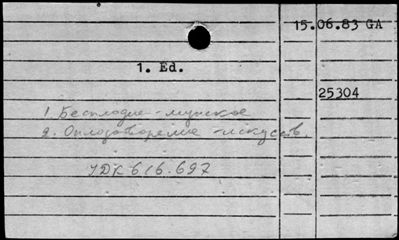 15.06.83 GA
1. Ed.
25304
1. Бесплодие - мужское
2. Оплодотворение - искусств.
УДК 616.697